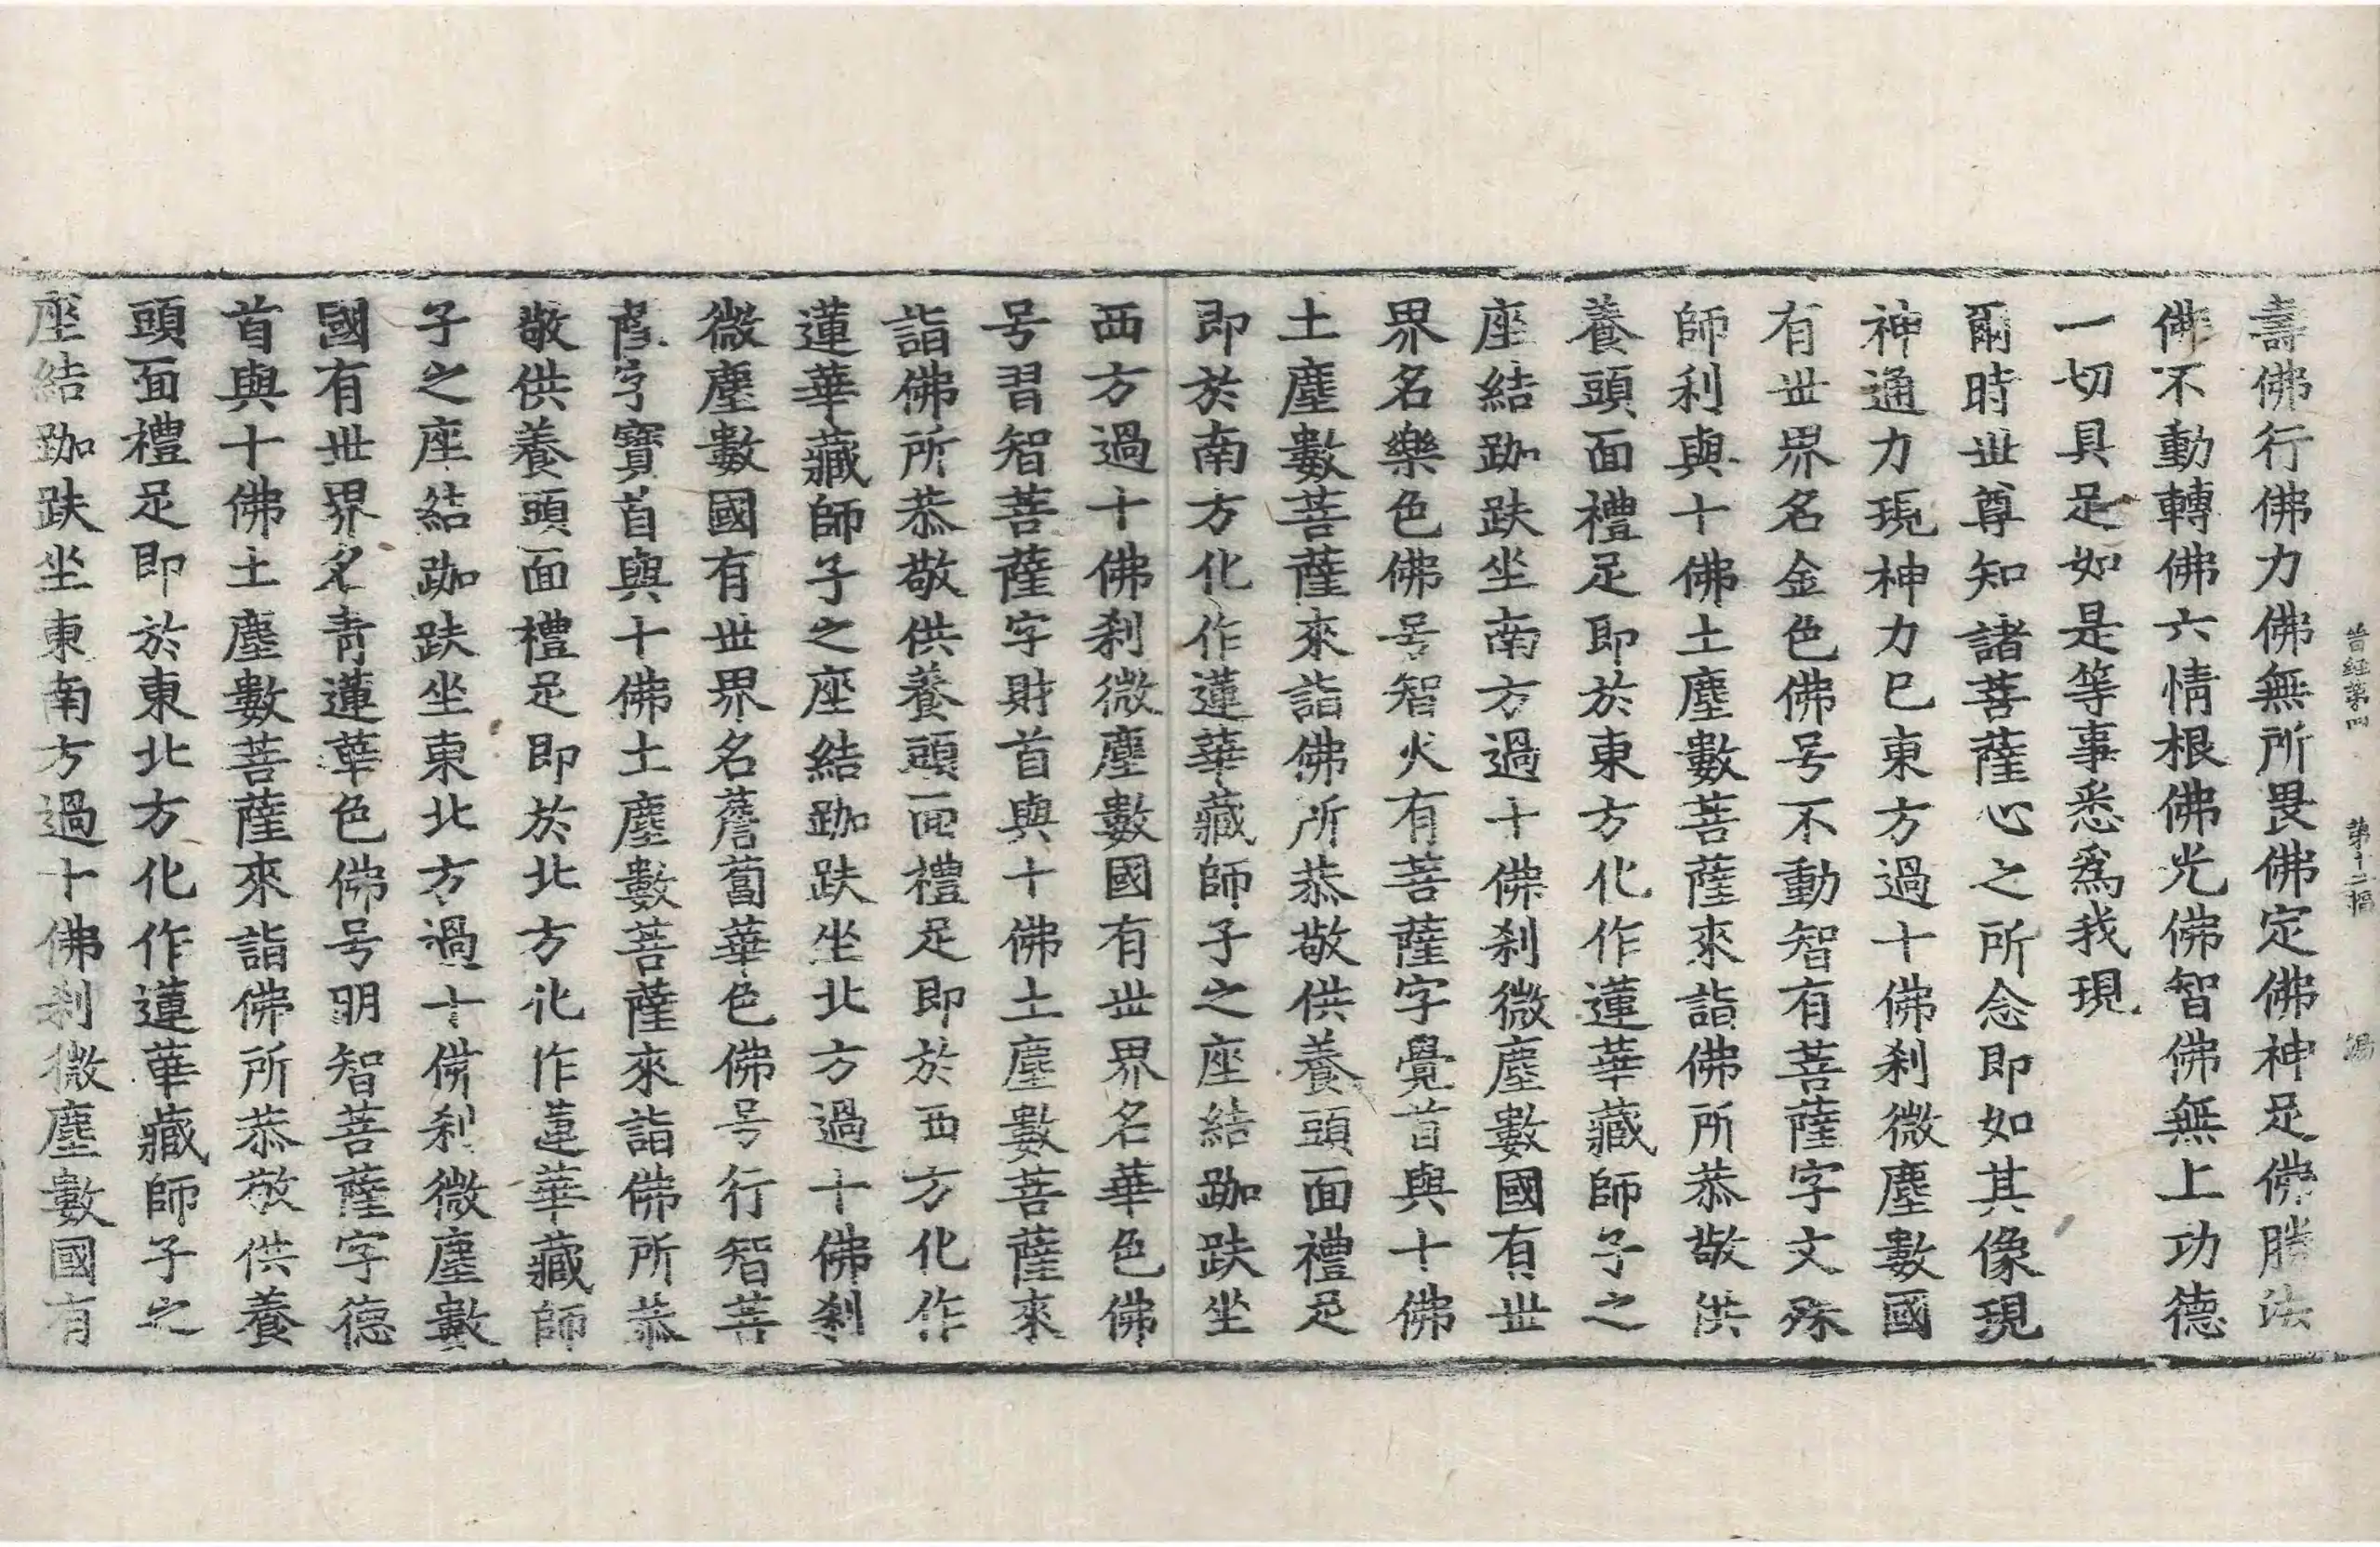 晉經第四　第十二幅　湯
壽佛行佛力佛無所畏佛定佛神足佛勝法
佛不動轉佛六情根佛光佛智佛無上功德
一切具足如是等事悉爲我現
爾時世尊知諸菩薩心之所念即如其像現
神通力現神力已東方過十佛刹微塵數國
有世界名金色佛号不動智有菩薩字文殊
師利與十佛土塵數菩薩來詣佛所恭敬供
養頭面禮足即於東方化作蓮華藏師子之
座結跏趺坐南方過十佛刹微塵數國有世
界名樂色佛号智火有菩薩字覺首與十佛
土塵數菩薩來詣佛所恭敬供養頭面禮足
即於南方化作蓮華藏師子之座結跏趺坐
西方過十佛刹微塵數國有世界名華色佛
号習智菩薩字財首與十佛土塵數菩薩來
詣佛所恭敬供養頭面禮足即於西方化作
蓮華藏師子之座結跏趺坐北方過十佛刹
微塵數國有世界名薝蔔華色佛号行智菩
薩字寶首與十佛土塵數菩薩來詣佛所恭
敬供養頭面禮足即於北方化作蓮華藏師
子之座結跏趺坐東北方過十佛刹微塵數
國有世界名青蓮華色佛号明智菩薩字德
首與十佛土塵數菩薩來詣佛所恭敬供養
頭面禮足即於東北方化作蓮華藏師子之
座結跏趺坐東南方過十佛刹微塵數國有